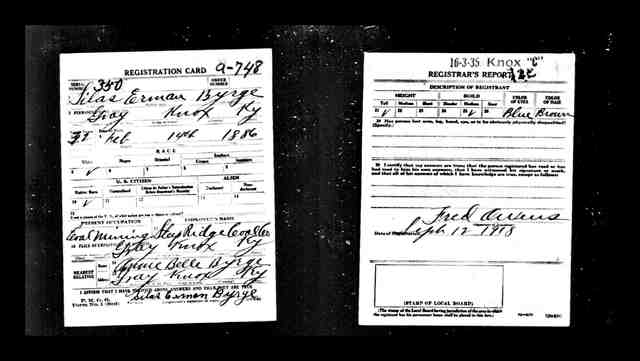 SERIAL NUMBER 350 REGISTRATION CARD ORDER NUMBER a-748
Silas Erman Byrge
Gray Knox Ky
Feb 14th 1886
RACE
White Negro Oriental Indian
Citizen Noncitizen
V
U. S. CITIZEN ALIEN
Native Born Naturalized Citizen by Father's Naturalization Before Registrant's Majority Declarant Non-declarant
10 V
PRESENT OCCUPATION EMPLOYER'S NAME
Coal Mining Ridge Coal Co
Gray Knox Ky
NEAREST RELATIVE Name Belle Byrge
Address Gray Knox Ky
I AFFIRM THAT I HAVE VERIFIED ABOVE ANSWERS AND THAT THEY ARE TRUE
P. M. G. O.
Form No. 1 (Red) Silas Erman Byrge
16-3-35 Knox "C"
REGISTRAR'S REPORT
DESCRIPTION OF REGISTRANT
HEIGHT BUILD COLOR OF EYES COLOR OF HAIR
Tall Medium Short Slender Medium Stout
21 V 22 V Blue Brown
29 Has person lost arm, leg, hand, eye, or is he obviously physically disqualified?
(Specify.)
30 I certify that my answers are true; that the person registered has read or has
had read to him his own answers; that I have witnessed his signature or mark,
and that all of his answers of which I have knowledge are true, except as follows:
Fred Owens
Date of Registration Sept 12 1918
(STAMP OF LOCAL BOARD)
(The stamp of the Local Board having jurisdiction of the area in which
the registrant has his permanent home shall be placed in this box.)